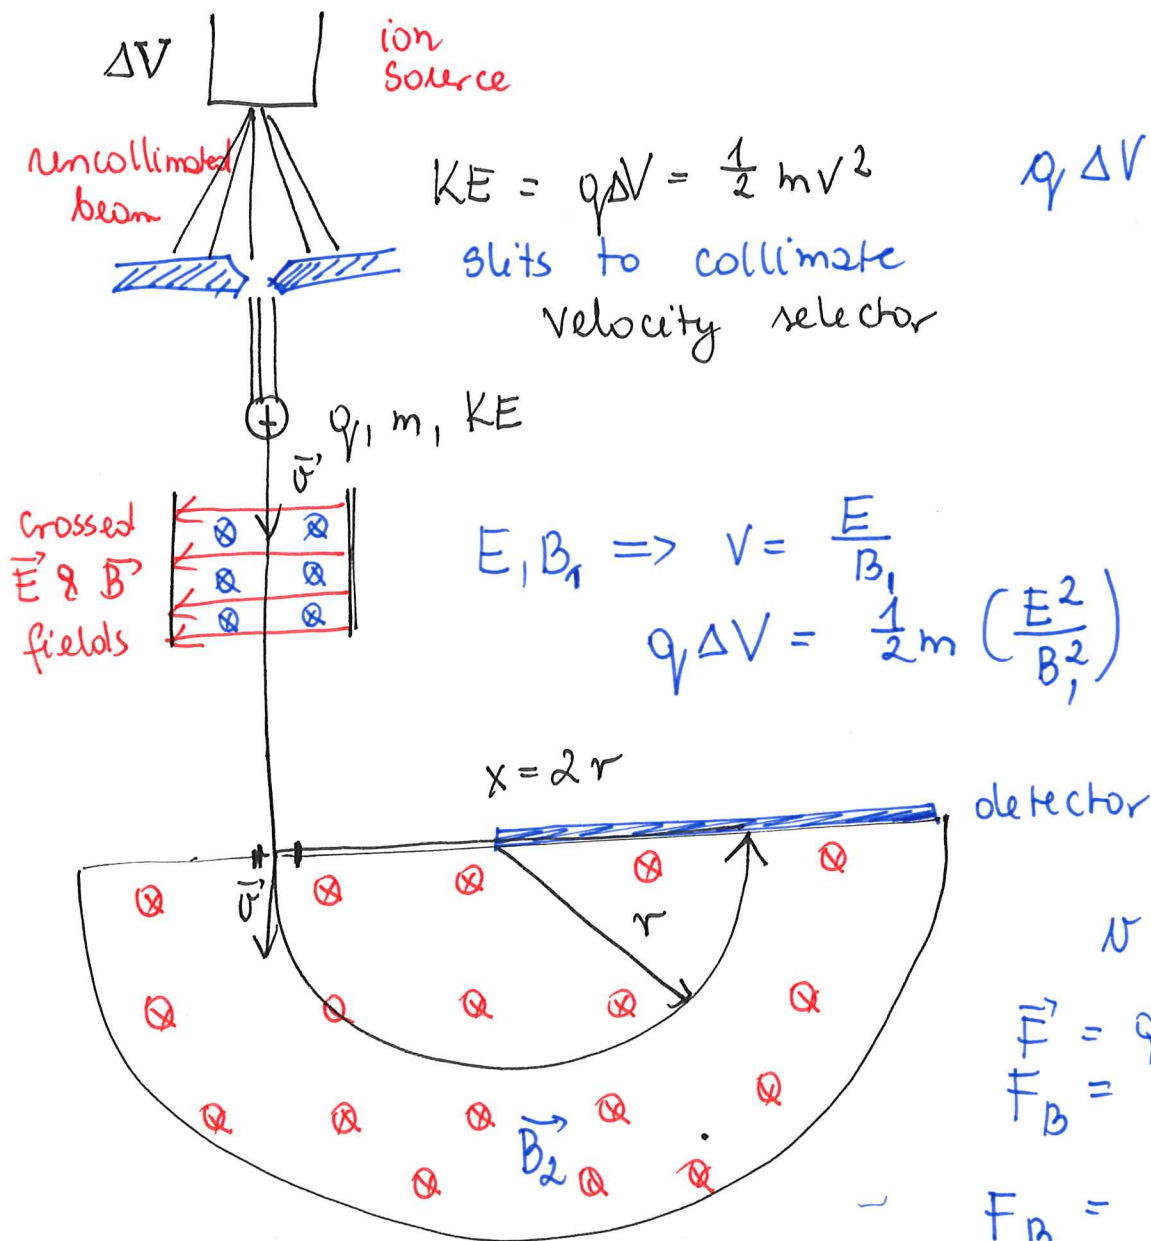 ΔV
ion
source
uncollimated
beam
KE = qΔV = 1/2 mv²
q ΔV
slits to collimate
velocity selector
q, m, KE
v⃗
crossed
E⃗ & B⃗
fields
E, B₁ => v = E/B₁
qΔV = 1/2 m (E²/B₁²)
x = 2r
detector
v⃗
r
v
F⃗ = q
F_B =
B⃗₂
- F_B =